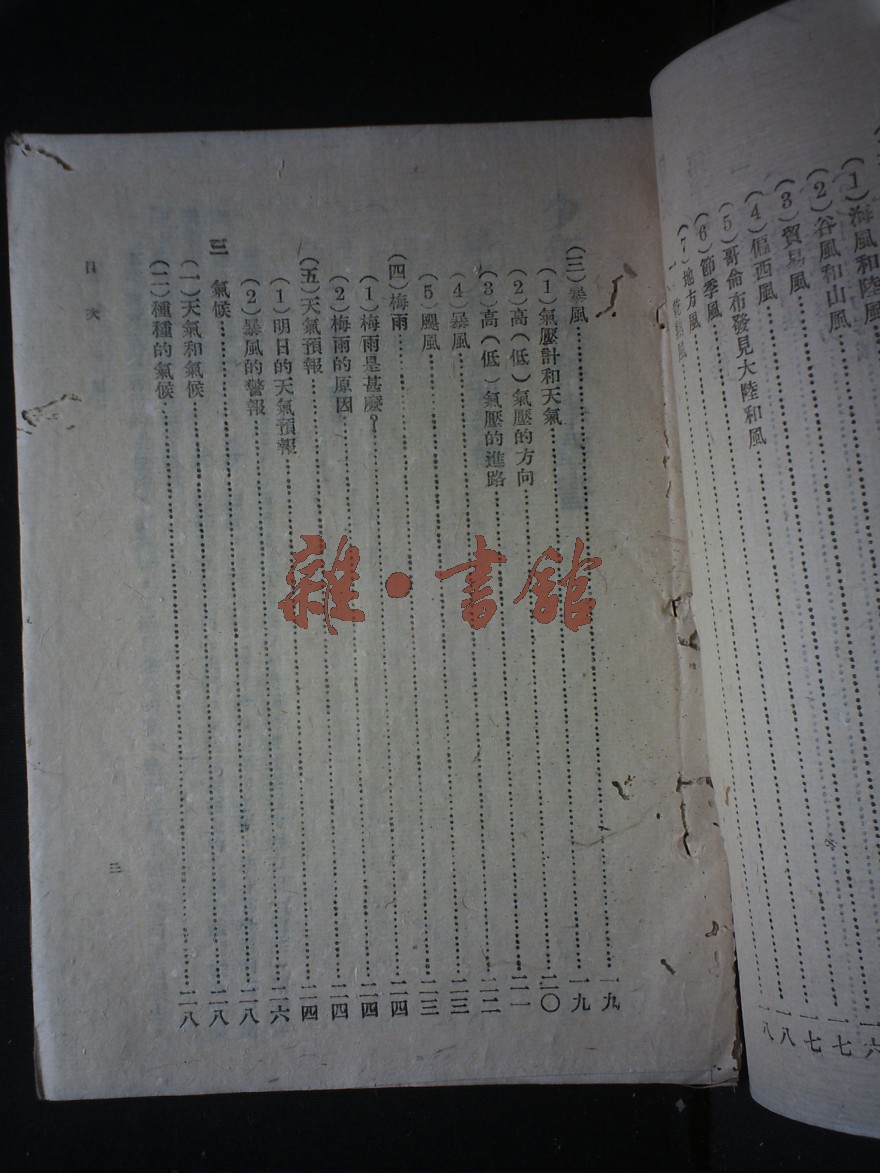 (1)海風和陸風
(2)谷風和山風
(3)貿易風……一六
(4)偏西風……一七
(5)哥倫布發見大陸和風……一七
(6)節季風……一八
(7)地方風……一八
(三)暴風……一九
(1)氣壓計和天氣……一九
(2)高(低)氣壓的方向……二〇
(3)高(低)氣壓的進路……二一
(4)暴風……二二
(5)颶風……二三
(四)梅雨……二三
(1)梅雨是甚麼?……二四
(2)梅雨的原因……二四
(五)天氣預報……二四
(1)明日的天氣預報……二四
(2)暴風的警報……二六
三 氣候……二八
(一)天氣和氣候……二八
(二)種種的氣候……二八
目次
二
雜·書館